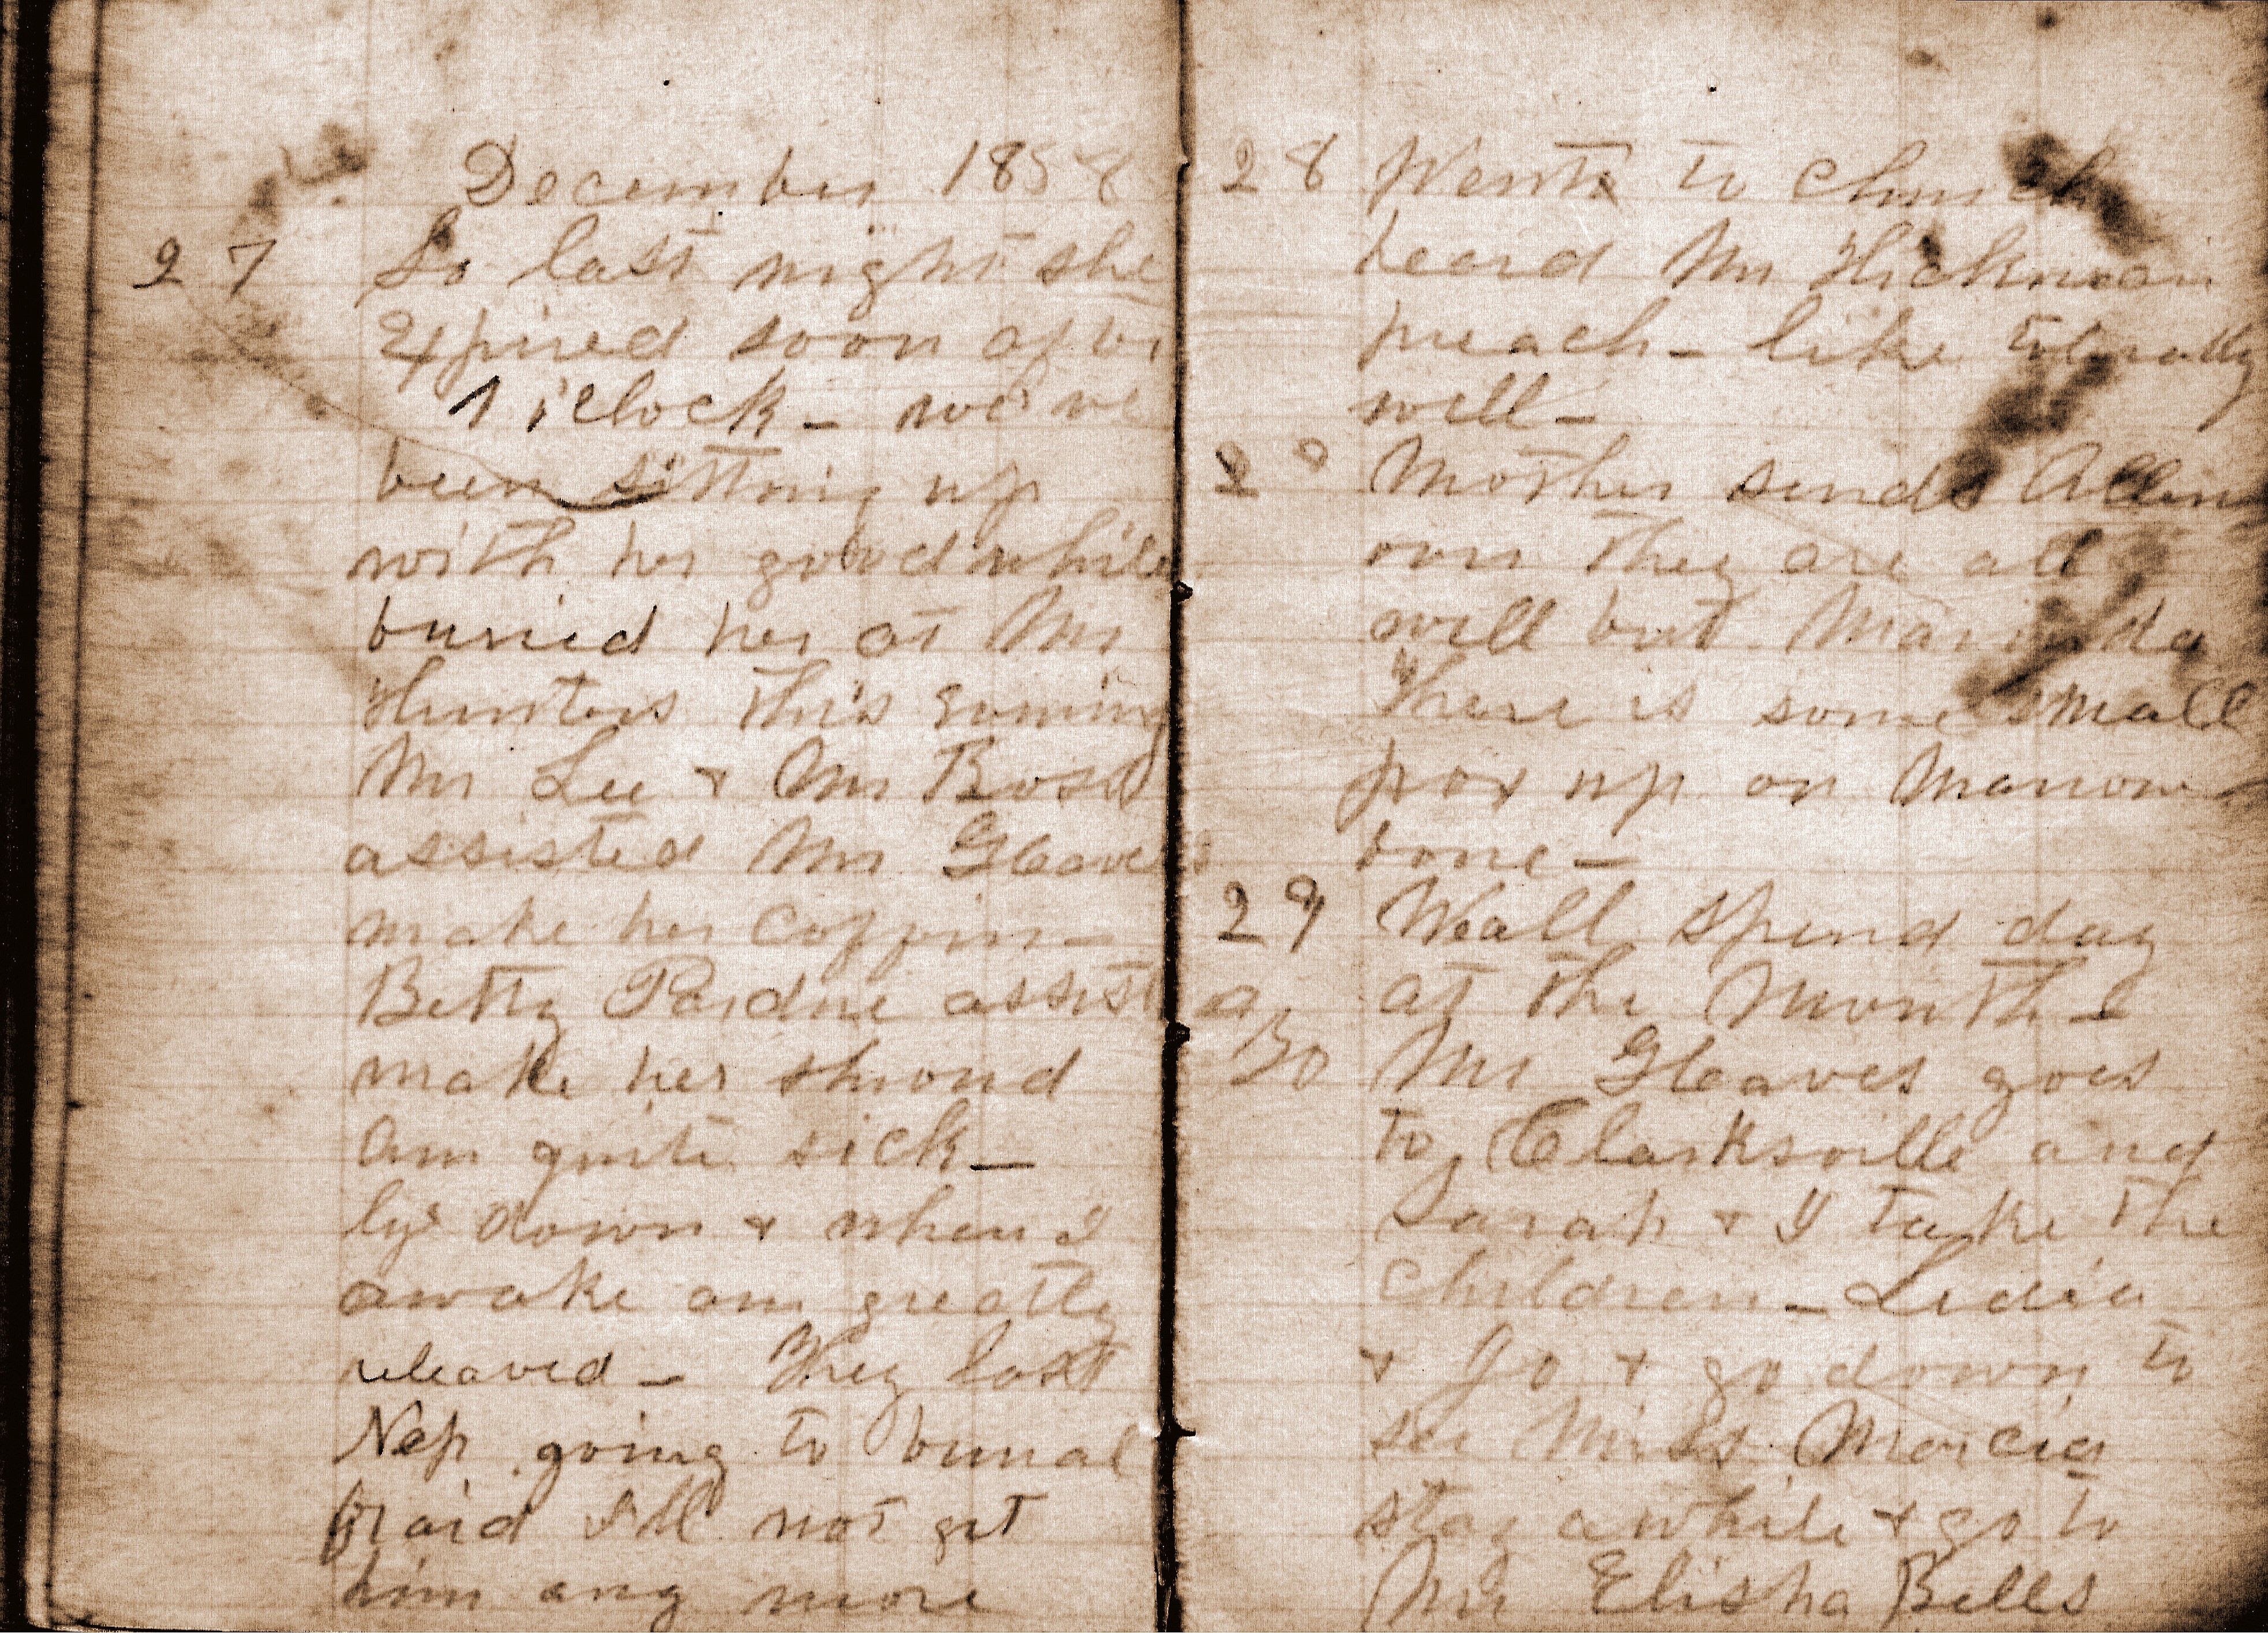 December 1858
27 So last night she
expired soon after
1 o'clock - we've
been sitting up
with her good while
buried her at Mr
Hunters this evening
Mr Lee + Mr Boss
assisted Mr Gleaves
make her coffin -
Betty Pardue assist
make her shroud
am quite sick -
ly down + when I
awake am greatly
releaved - They lost
Nep going to burial
fraid I'll not get
him any more
28 Went to church
heard Mr Hickman
preach - like tolerably
well -
2 Mother sends Allen
over they are all
well but
There is some small
pox up on Marrow
bone -
29 We all spend day
at the Mouth -
30 Mr Gleaves goes
to Clarksville and
Sarah + I take the
children - Lidia
+ Jo + go down to
see Miss Marcia
stay awhile + go to
Mr Elisha Bells